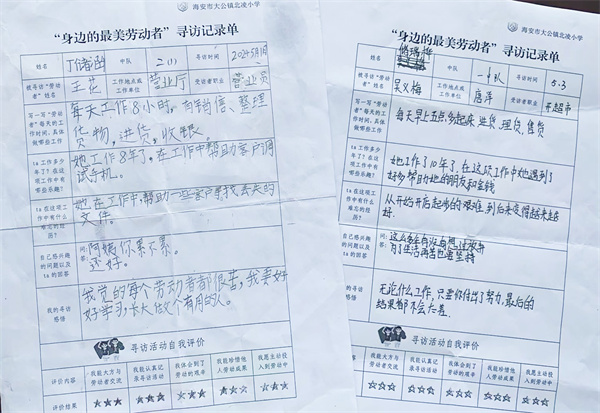 海安市大公镇北凌小学
“身边的最美劳动者”寻访记录单
姓名
中队
2(1)
寻访时间
2024年5月1日
被寻访“劳动者”姓名
王花
工作地点或工作单位
营业厅
受访者职业
营业员
写一写“劳动者”每天的工作时间、具体做哪些工作
每天工作8小时。
整理
货物,进货,收银。
ta工作多少年了?在这项工作中有哪些乐趣?
她工作8年了,在工作中帮助客户调
试手机。
ta在这项工作中有什么难忘的经历?
她在工作中帮助一些客户寻找丢失的
文件。
自己感兴趣的问题以及ta的回答
问:阿姨你累不累。
答:还好。
我的寻访感悟
我觉的每个劳动者都很苦,我要好
好学习,长大做个有用的人。
寻访活动自我评价
评价内容
我能大方与劳动者交流
我能认真记录寻访活动
我体会到了劳动的艰辛
我能珍惜他人劳动成果
我愿主动投入到劳动中
评价结果
★★★
★★★
★★★
★★☆
★★★
海安市大公镇北凌小学
“身边的最美劳动者”寻访记录单
姓名
中队
寻访时间
5.3
被寻访“劳动者”姓名
吴义梅
工作地点或工作单位
唐洋
受访者职业
开超市
写一写“劳动者”每天的工作时间、具体做哪些工作
每天早上五点多起来进货,理货,售货
ta工作多少年了?在这项工作中有哪些乐趣?
她工作了10年了,在这项工作中她遇到了
好多帮助她的朋友和金钱
ta在这项工作中有什么难忘的经历?
从开始开店起步的艰难,到后来变得越来越
好.
自己感兴趣的问题以及ta的回答
问:这么多年有没有想过放弃
答:为了生活再苦也要坚持
我的寻访感悟
无论什么工作,只要你付出了努力,最后的
结果都不会太差.
寻访活动自我评价
评价内容
我能大方与劳动者交流
我能认真记录寻访活动
我体会到了劳动的艰辛
我能珍惜他人劳动成果
我愿主动投入到劳动中
评价结果
☆☆☆
☆☆☆
☆☆☆
☆☆☆
☆☆☆